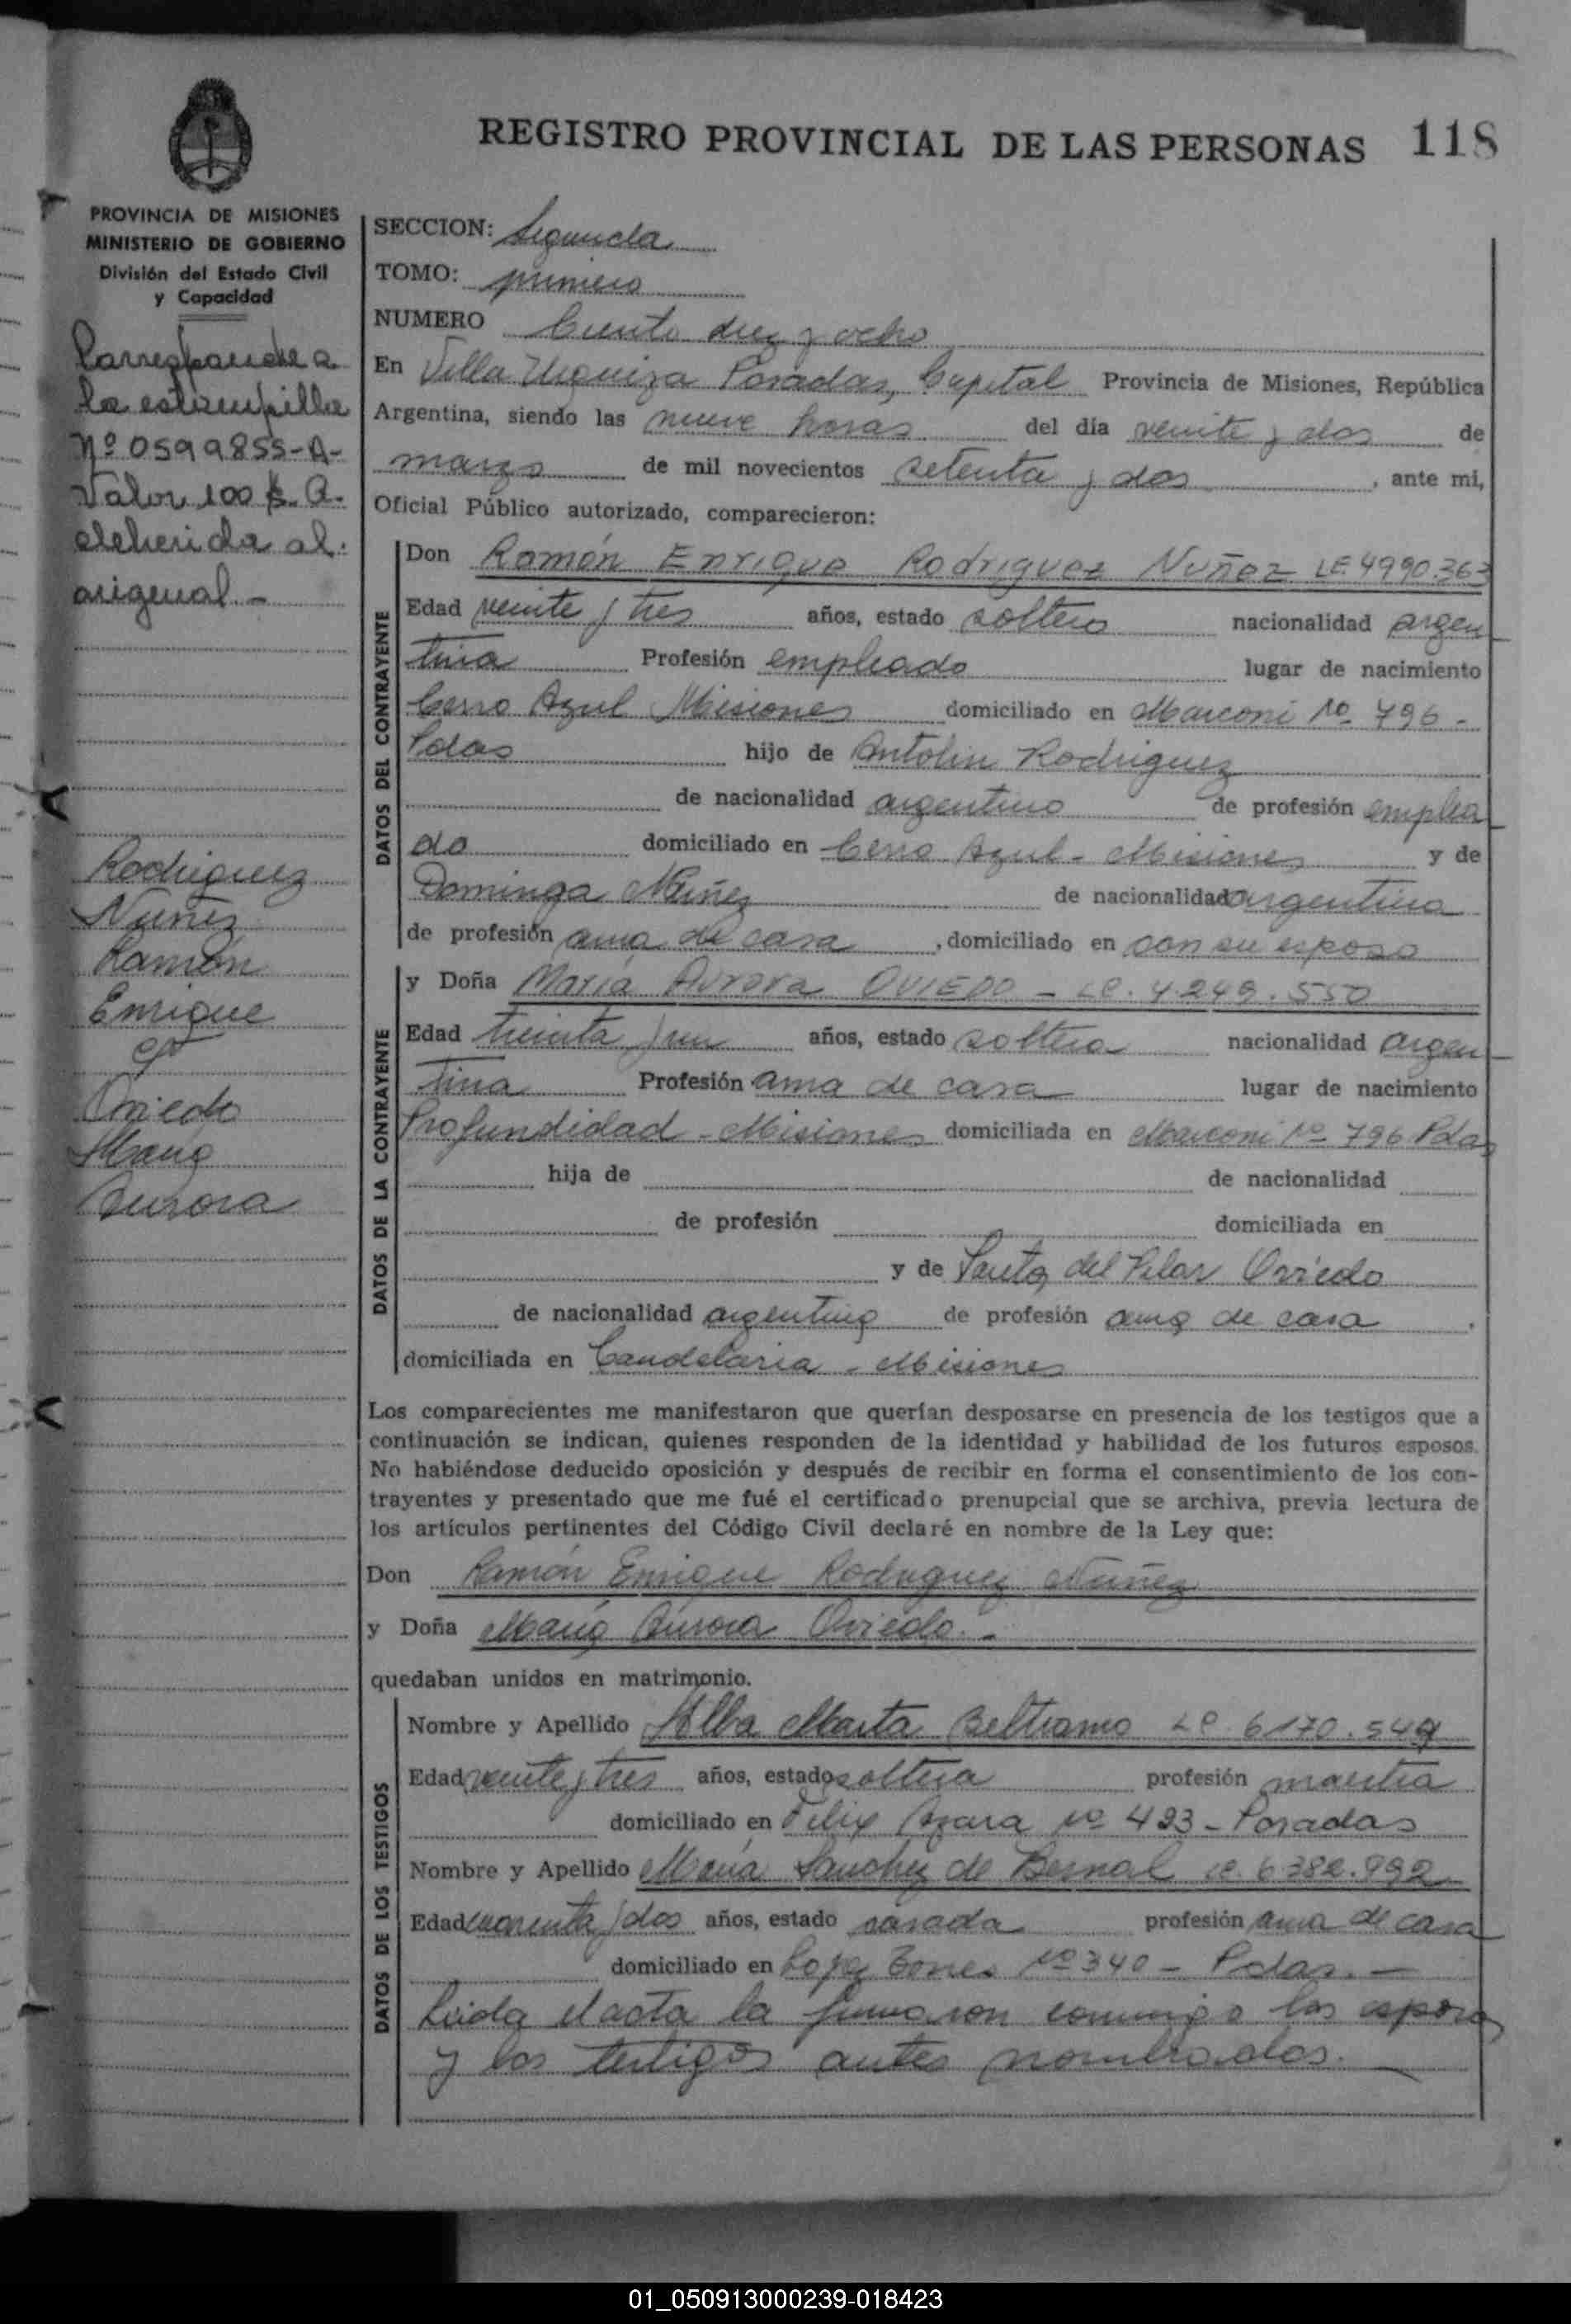 REGISTRO PROVINCIAL DE LAS PERSONAS 118
PROVINCIA DE MISIONES
MINISTERIO DE GOBIERNO
División del Estado Civil
y Capacidad
Corresponde a
la estampilla
Nº 0599855-A-
Valor 100 $. a.
deherida al
original.-
Rodriguez
Nuñez
Ramón
Enrique
c/
Oviedo
María
Aurora
SECCION: Segunda
TOMO: primero
NUMERO Ciento diez y ocho
En Villa Urquiza Posadas, Capital Provincia de Misiones, República
Argentina, siendo las nueve horas del día veinte y dos de
marzo de mil novecientos setenta y dos, ante mi,
Oficial Público autorizado, comparecieron:
DATOS DEL CONTRAYENTE
Don Ramón Enrique Rodriguez Nuñez LE 4990.363
Edad veinte y tres años, estado soltero nacionalidad argen
tina Profesión empleado lugar de nacimiento
Cerro Azul Misiones domiciliado en Marconi Nº 796-
Pdas hijo de Antolin Rodriguez
de nacionalidad argentino de profesión emplea
do domiciliado en Cerro Azul - Misiones y de
Dominga Nuñez de nacionalidad argentina
de profesión ama de casa, domiciliado en con su esposo
DATOS DE LA CONTRAYENTE
y Doña María Aurora OVIEDO - LC. 4.249.550
Edad treinta y un años, estado soltera nacionalidad argen
tina Profesión ama de casa lugar de nacimiento
Profundidad - Misiones domiciliada en Marconi Nº 796 Pdas
hija de de nacionalidad
de profesión domiciliada en
y de Santa del Pilar Oviedo
de nacionalidad argentina de profesión ama de casa,
domiciliada en Candelaria - Misiones
Los comparecientes me manifestaron que querían desposarse en presencia de los testigos que a
continuación se indican, quienes responden de la identidad y habilidad de los futuros esposos.
No habiéndose deducido oposición y después de recibir en forma el consentimiento de los con-
trayentes y presentado que me fué el certificado prenupcial que se archiva, previa lectura de
los artículos pertinentes del Código Civil declaré en nombre de la Ley que:
Don Ramón Enrique Rodriguez Nuñez
y Doña María Aurora Oviedo.-
quedaban unidos en matrimonio.
DATOS DE LOS TESTIGOS
Nombre y Apellido Alba Marta Beltramo LC 6170.549
Edad veinte y tres años, estado soltera profesión maestra
domiciliado en Felix Azara Nº 423 - Posadas
Nombre y Apellido María Sanchez de Bernal LC. 6382.992
Edad cuarenta y dos años, estado casada profesión ama de casa
domiciliado en Lopez Torres Nº 340 - Pdas.-
Leida el acta la firmaron conmigo los esposos
y los testigos antes nombrados.
01_050913000239-018423